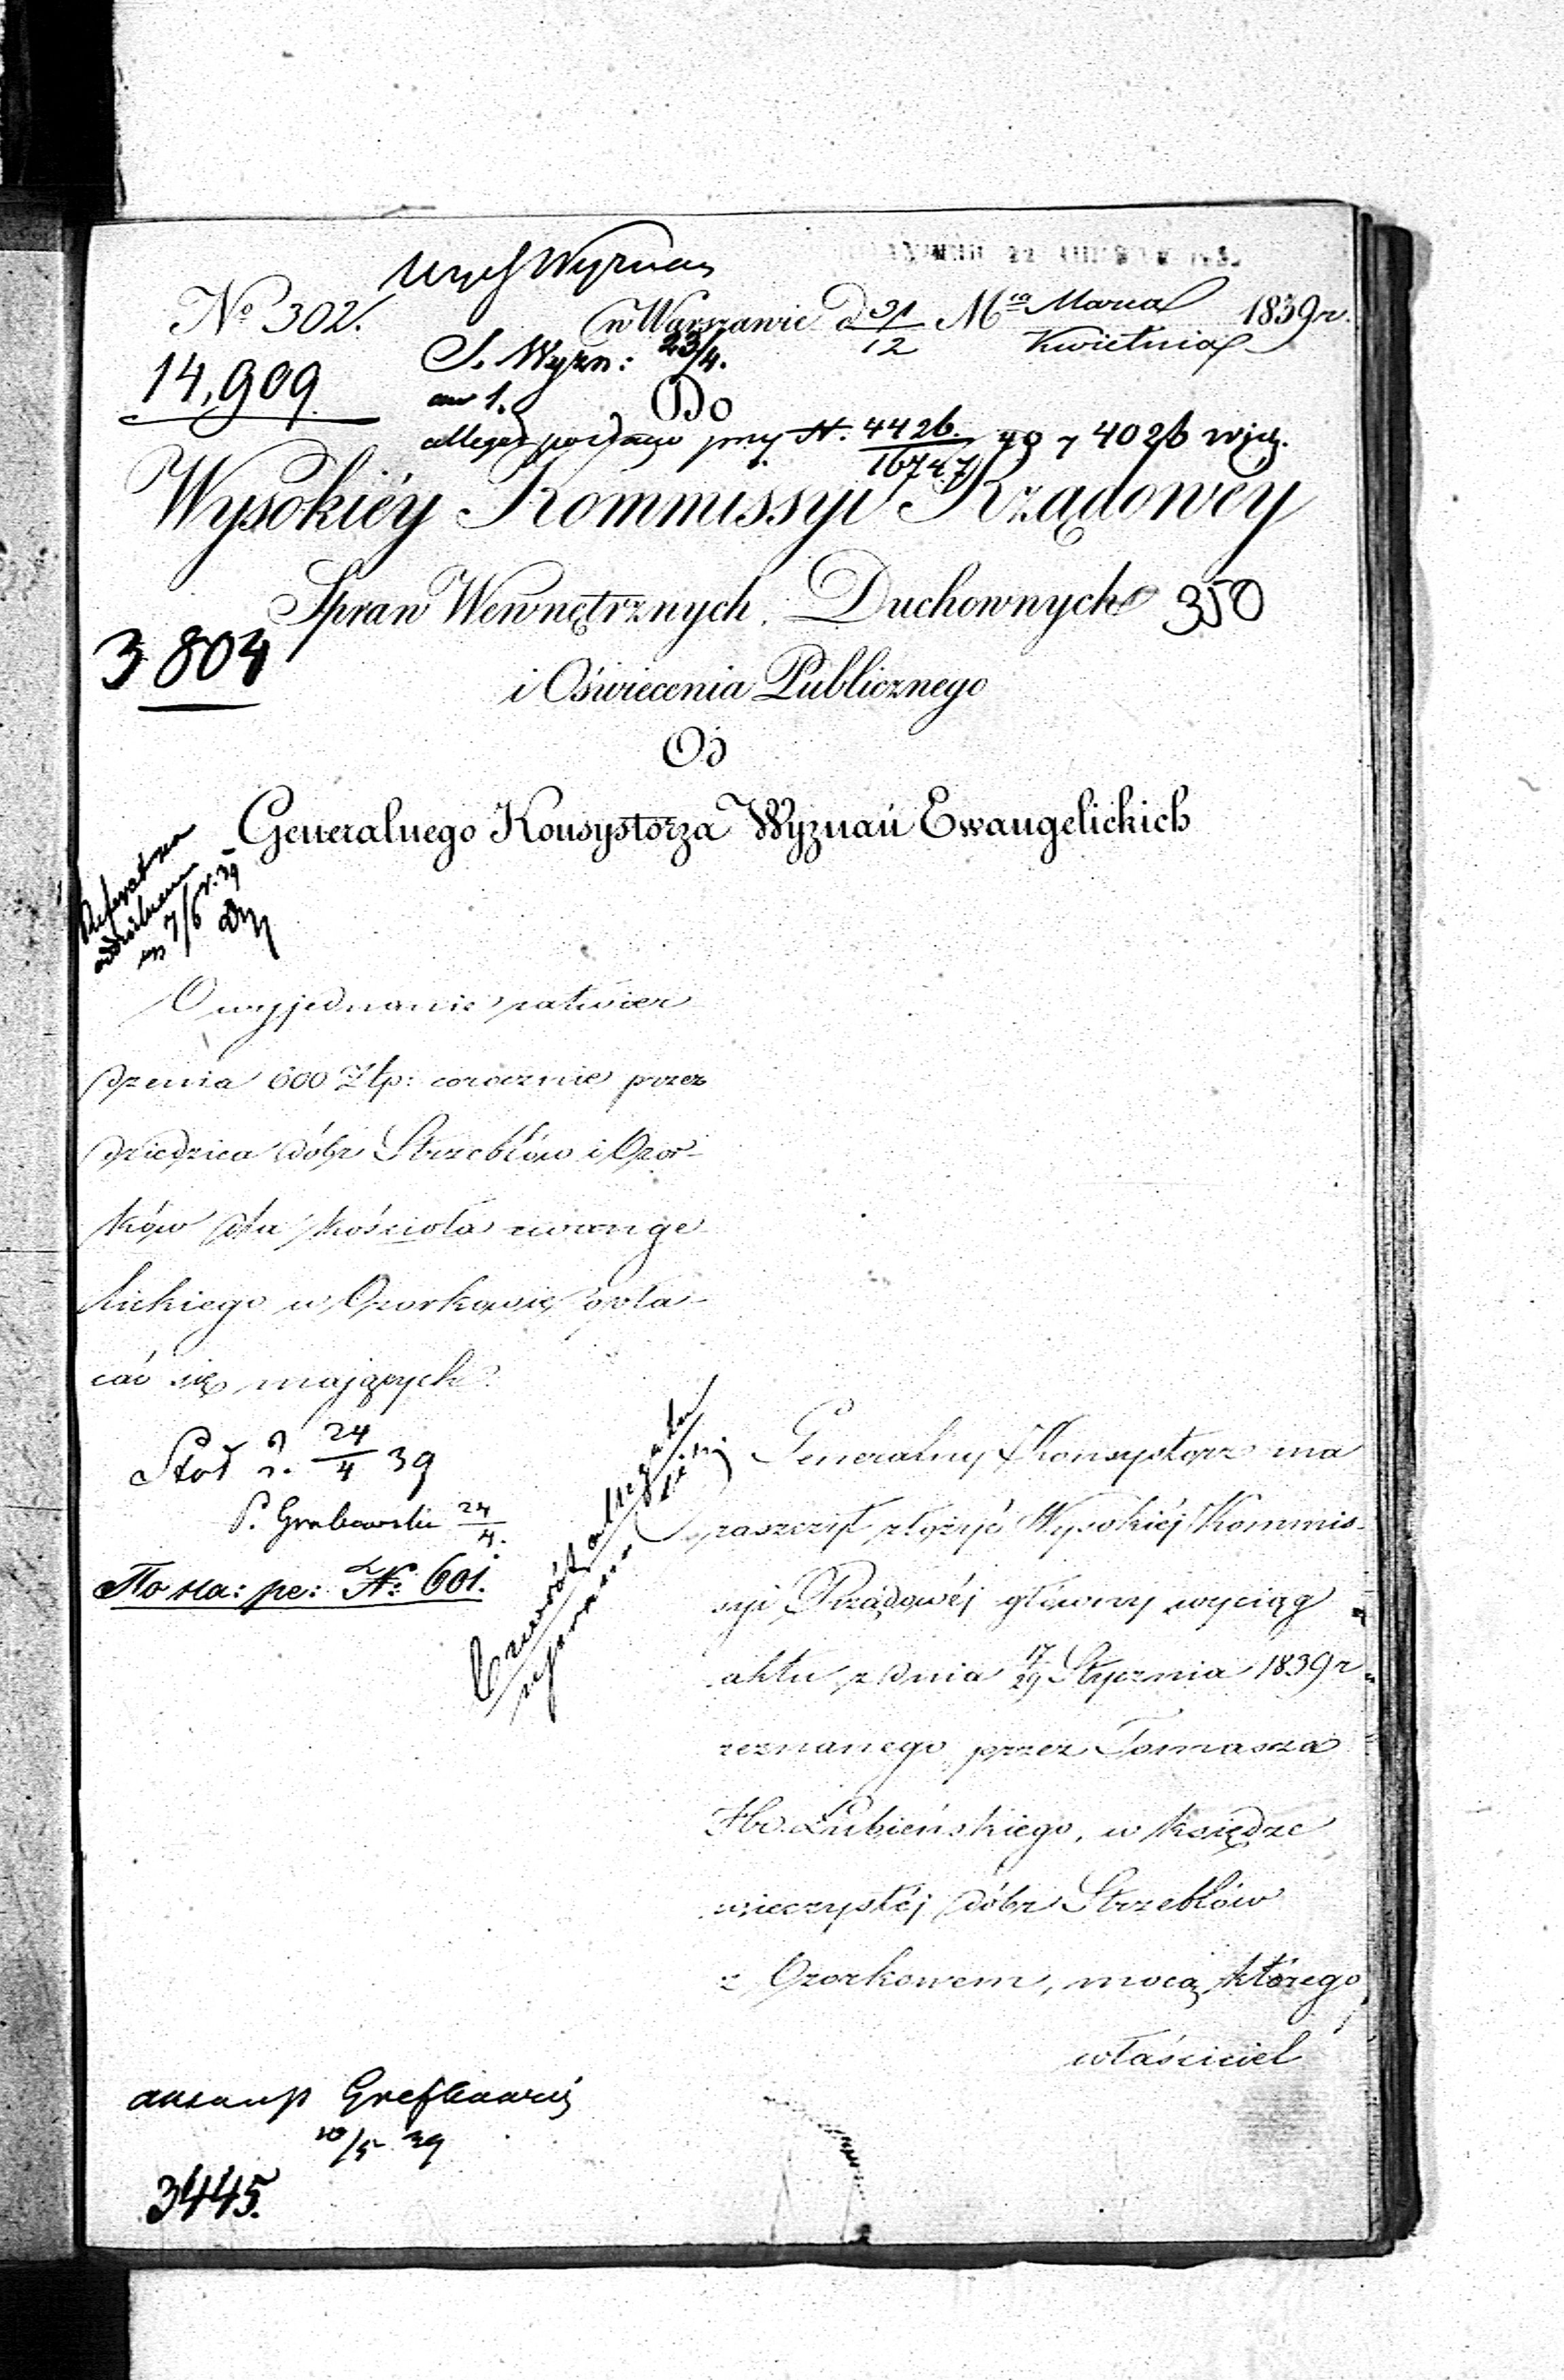 No 302.
w Warszawie d 31/12 Mca Marca/Kwietnia 1839 r.
14,909
S. Wyzn: 23/4.
Do
przy N. 4426.
Wysokiéy Kommissyi Rządowéy
Spraw Wewnętrznych, Duchownych 350
3804
i Oświecenia Publicznego
Od
Generalnego Konsystorza Wyznań Ewangelickich
O wyjednanie zatwier
dzenia 600 Złp: corocznie przez
dziedzica dóbr Strzebłów i Ozor-
ków dla kościoła ewange
lickiego w Ozorkowie opła-
cać się mających.
24/4 39
P. Grabowski 24/4.
N: 601.
Generalny Konsystorz ma
zaszczyt złożyć Wysokiéj Kommis-
syi Rządowéj główny wyciąg
aktu z dnia 17/29 Stycznia 1839 r
zeznanego przez Tomasza
Hr. Łubieńskiego, w księdze
wieczystéj dóbr Strzebłów
z Ozorkowem, mocą którego
właściciel
10/5 39
3445.